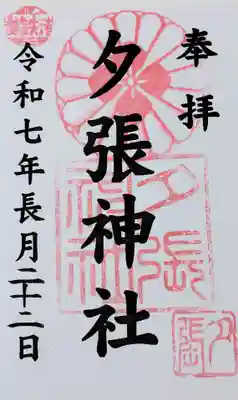 奉拝
夕張神社
令和七年長月二十二日
夕張
神社